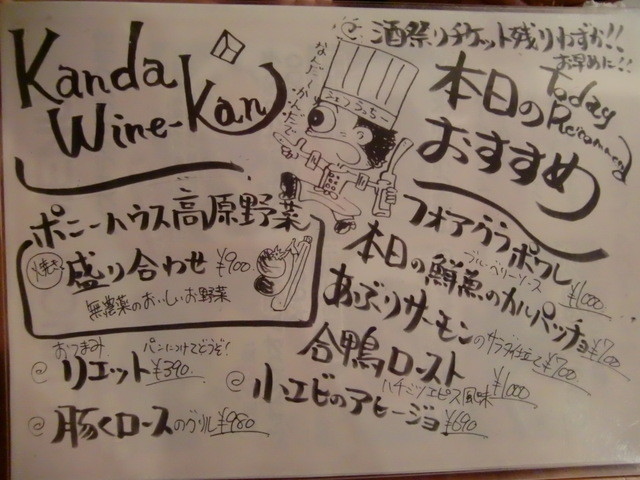 Kanda
Wine-Kan
酒祭りチケット残りわずか!!
お早めに!!
本日の
おすすめ
Today
Recommend
なんだ〜かんだで
シェフうっちー
ポニーハウス高原野菜
焼き
盛り合わせ ¥900
無農薬のおいしいお野菜
おつまみ パンにつけてどうぞ!
リエット ¥390
豚くロースのグリル ¥980
フォアグラポワレ
ブルーベリーソース ¥1000
本日の鮮魚のカルパッチョ ¥700
あぶりサーモンのサラダ仕立て ¥700
合鴨ロースト
ハチミツエピス風味 ¥1000
小エビのアヒージョ ¥690